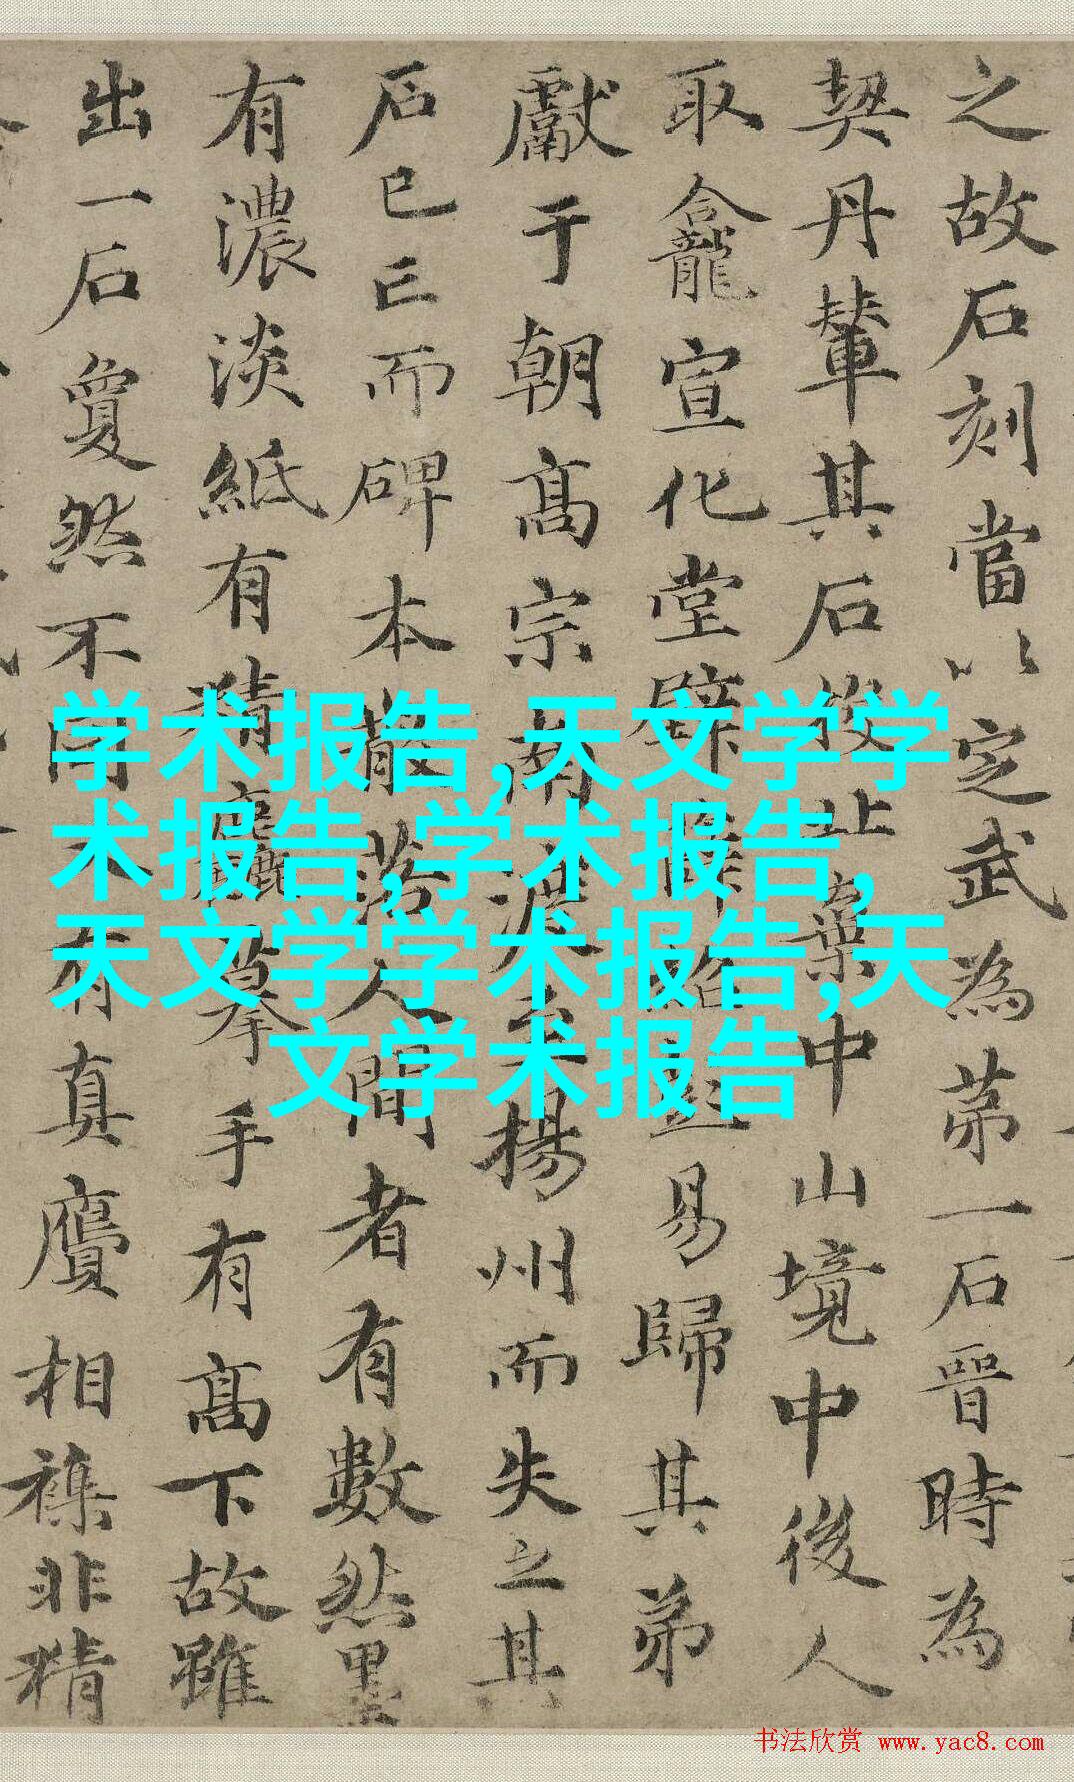 之故石刻當以定武為苐一石晉時為
契丹輦其石後止棄中山境中後人
取龕宣化堂壁薛紹彭易歸其弟
獻于朝髙宗南渡至揚州而失之其
石已亡而碑本散落人間者有數然墨
有濃淡紙有精麤摹手有髙下故雖
出一石夐然不同又有真贗相襍非精
学术报告,天文学学
术报告,学术报告,
天文学学术报告,天
文学术报告
书法欣赏 www.yac8.com